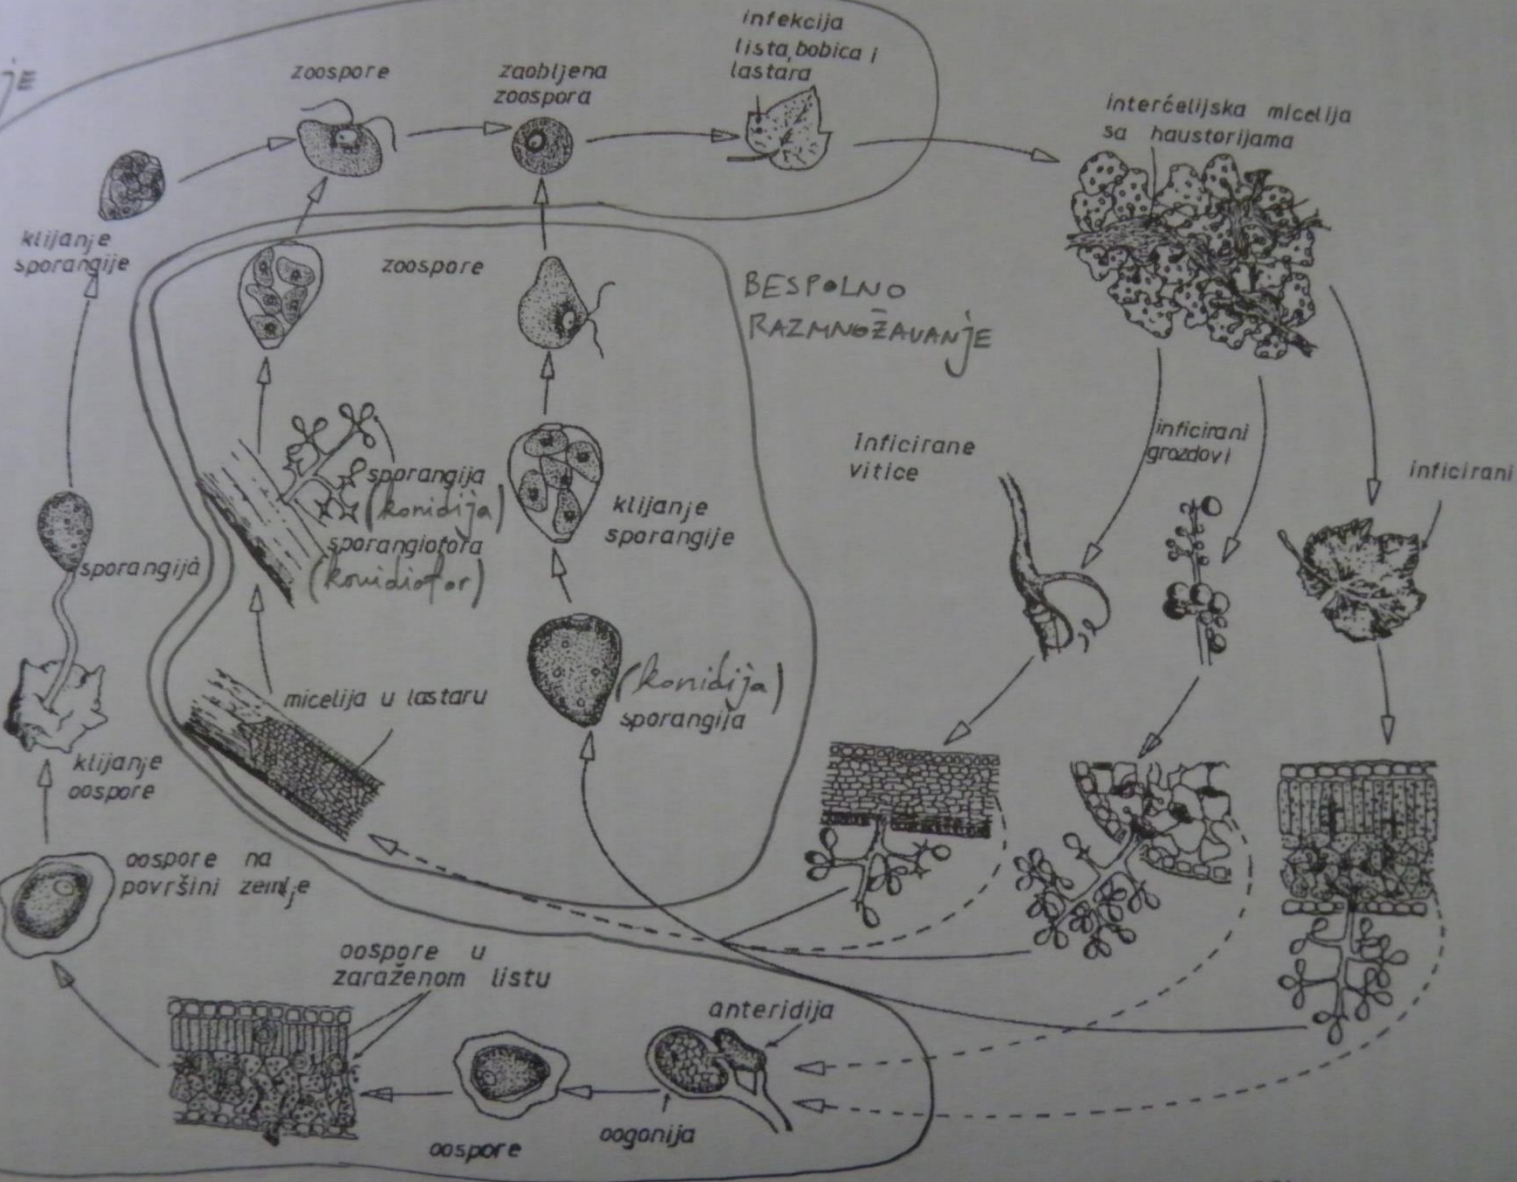 JE
zoospore
zaobljena
zoospora
infekcija
lista, bobica i
lastara
interćelijska micelija
sa haustorijama
klijanje
sporangije
zoospore
BESPOLNO
RAZMNOŽAVANJE
Inficirane
vitice
inficirani
grozdovi
inficirani
sporangija
(konidija)
sporangiofora
(konidiofor)
klijanje
sporangije
sporangija
micelija u lastaru
(konidija)
sporangija
klijanje
oospore
oospore na
površini zemlje
oospore u
zaraženom listu
anteridija
oogonija
oospore